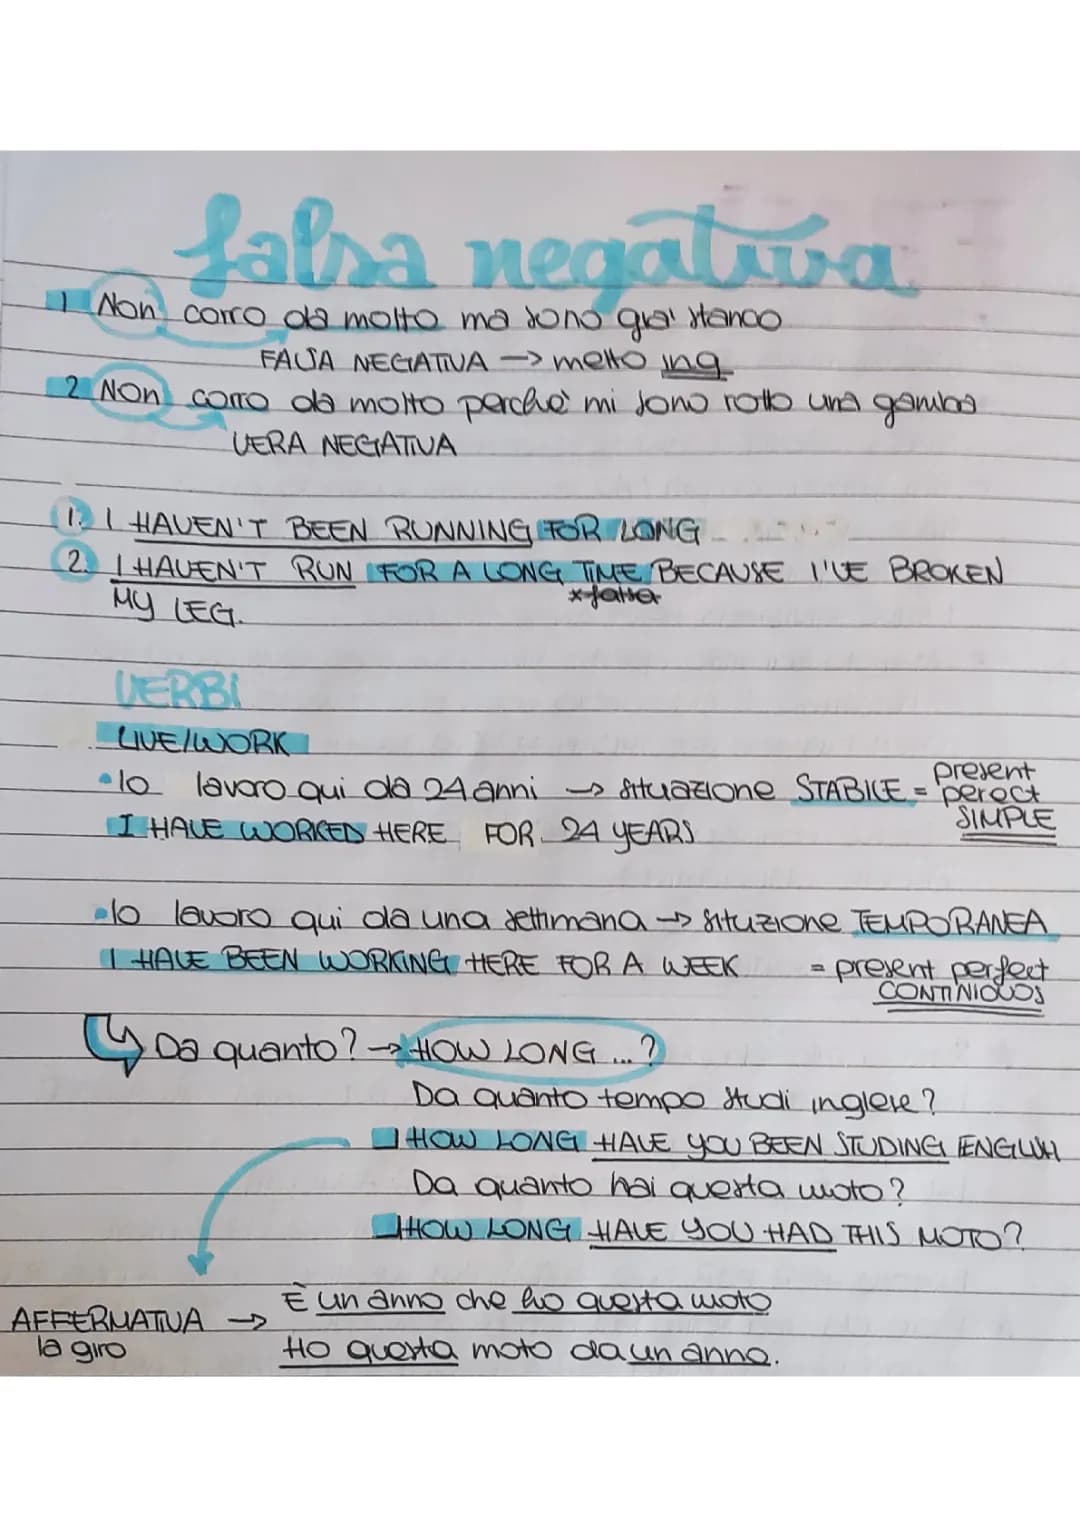 falsa negativa
1 Non corro da molto ma sono gia' stanco
FALSA NEGATIVA → metto ing
2 Non corro da molto perche' mi sono rotto una gamba
VERA NEGATIVA
1. I HAVEN'T BEEN RUNNING FOR LONG
2. I HAVEN'T RUN FOR A LONG TIME BECAUSE I'VE BROKEN
MY LEG.
VERBI
LIVE/WORK
•Io lavoro qui da 24 anni → situazione STABILE = present perect SIMPLE
I HAVE WORKED HERE FOR 24 YEARS
•Io lavoro qui da una settimana → situzione TEMPORANEA
I HAVE BEEN WORKING HERE FOR A WEEK = present perfect
CONTINIOUOS
Da quanto? → HOW LONG ...?
Da quanto tempo studi inglese?
HOW LONG HAVE YOU BEEN STUDING ENGLISH
Da quanto hai questa moto?
HOW LONG HAVE YOU HAD THIS MOTO?
È un anno che ho questa moto
AFFERMATIVA →
la giro Ho questa moto da un anno.